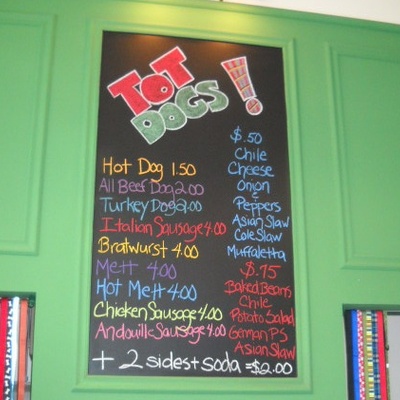 TOT
DOGS!
Hot Dog 1.50
All Beef Dog 2.00
Turkey Dog 2.00
Italian Sausage 4.00
Bratwurst 4.00
Mett 4.00
Hot Mett 4.00
Chicken Sausage 4.00
Andouille Sausage 4.00
$.50
Chile
Cheese
Onion
Peppers
Asian Slaw
Cole Slaw
Muffaletta
$.75
Baked Beans
Chile
Potato Salad
German PS
Asian Slaw
+ 2 sides + soda = $2.00